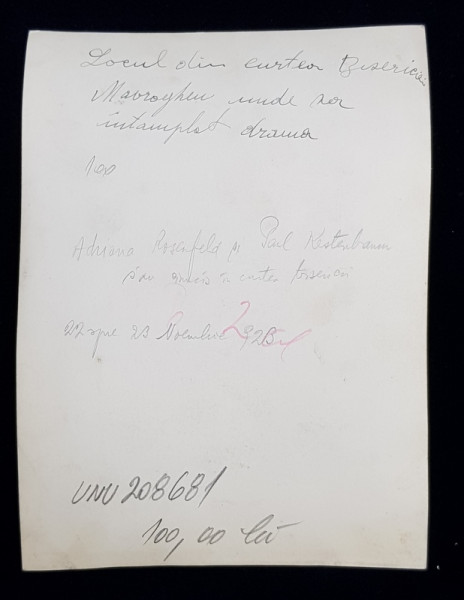 Locul din curtea Bisericii
Mavrogheni unde s-a
intamplat drama
100
Adriana Rosenfeld și Paul Kestenbaum
s'au în curtea bisericii
22 spre 23 Noembrie
2
UNU 208681
100,00 lei